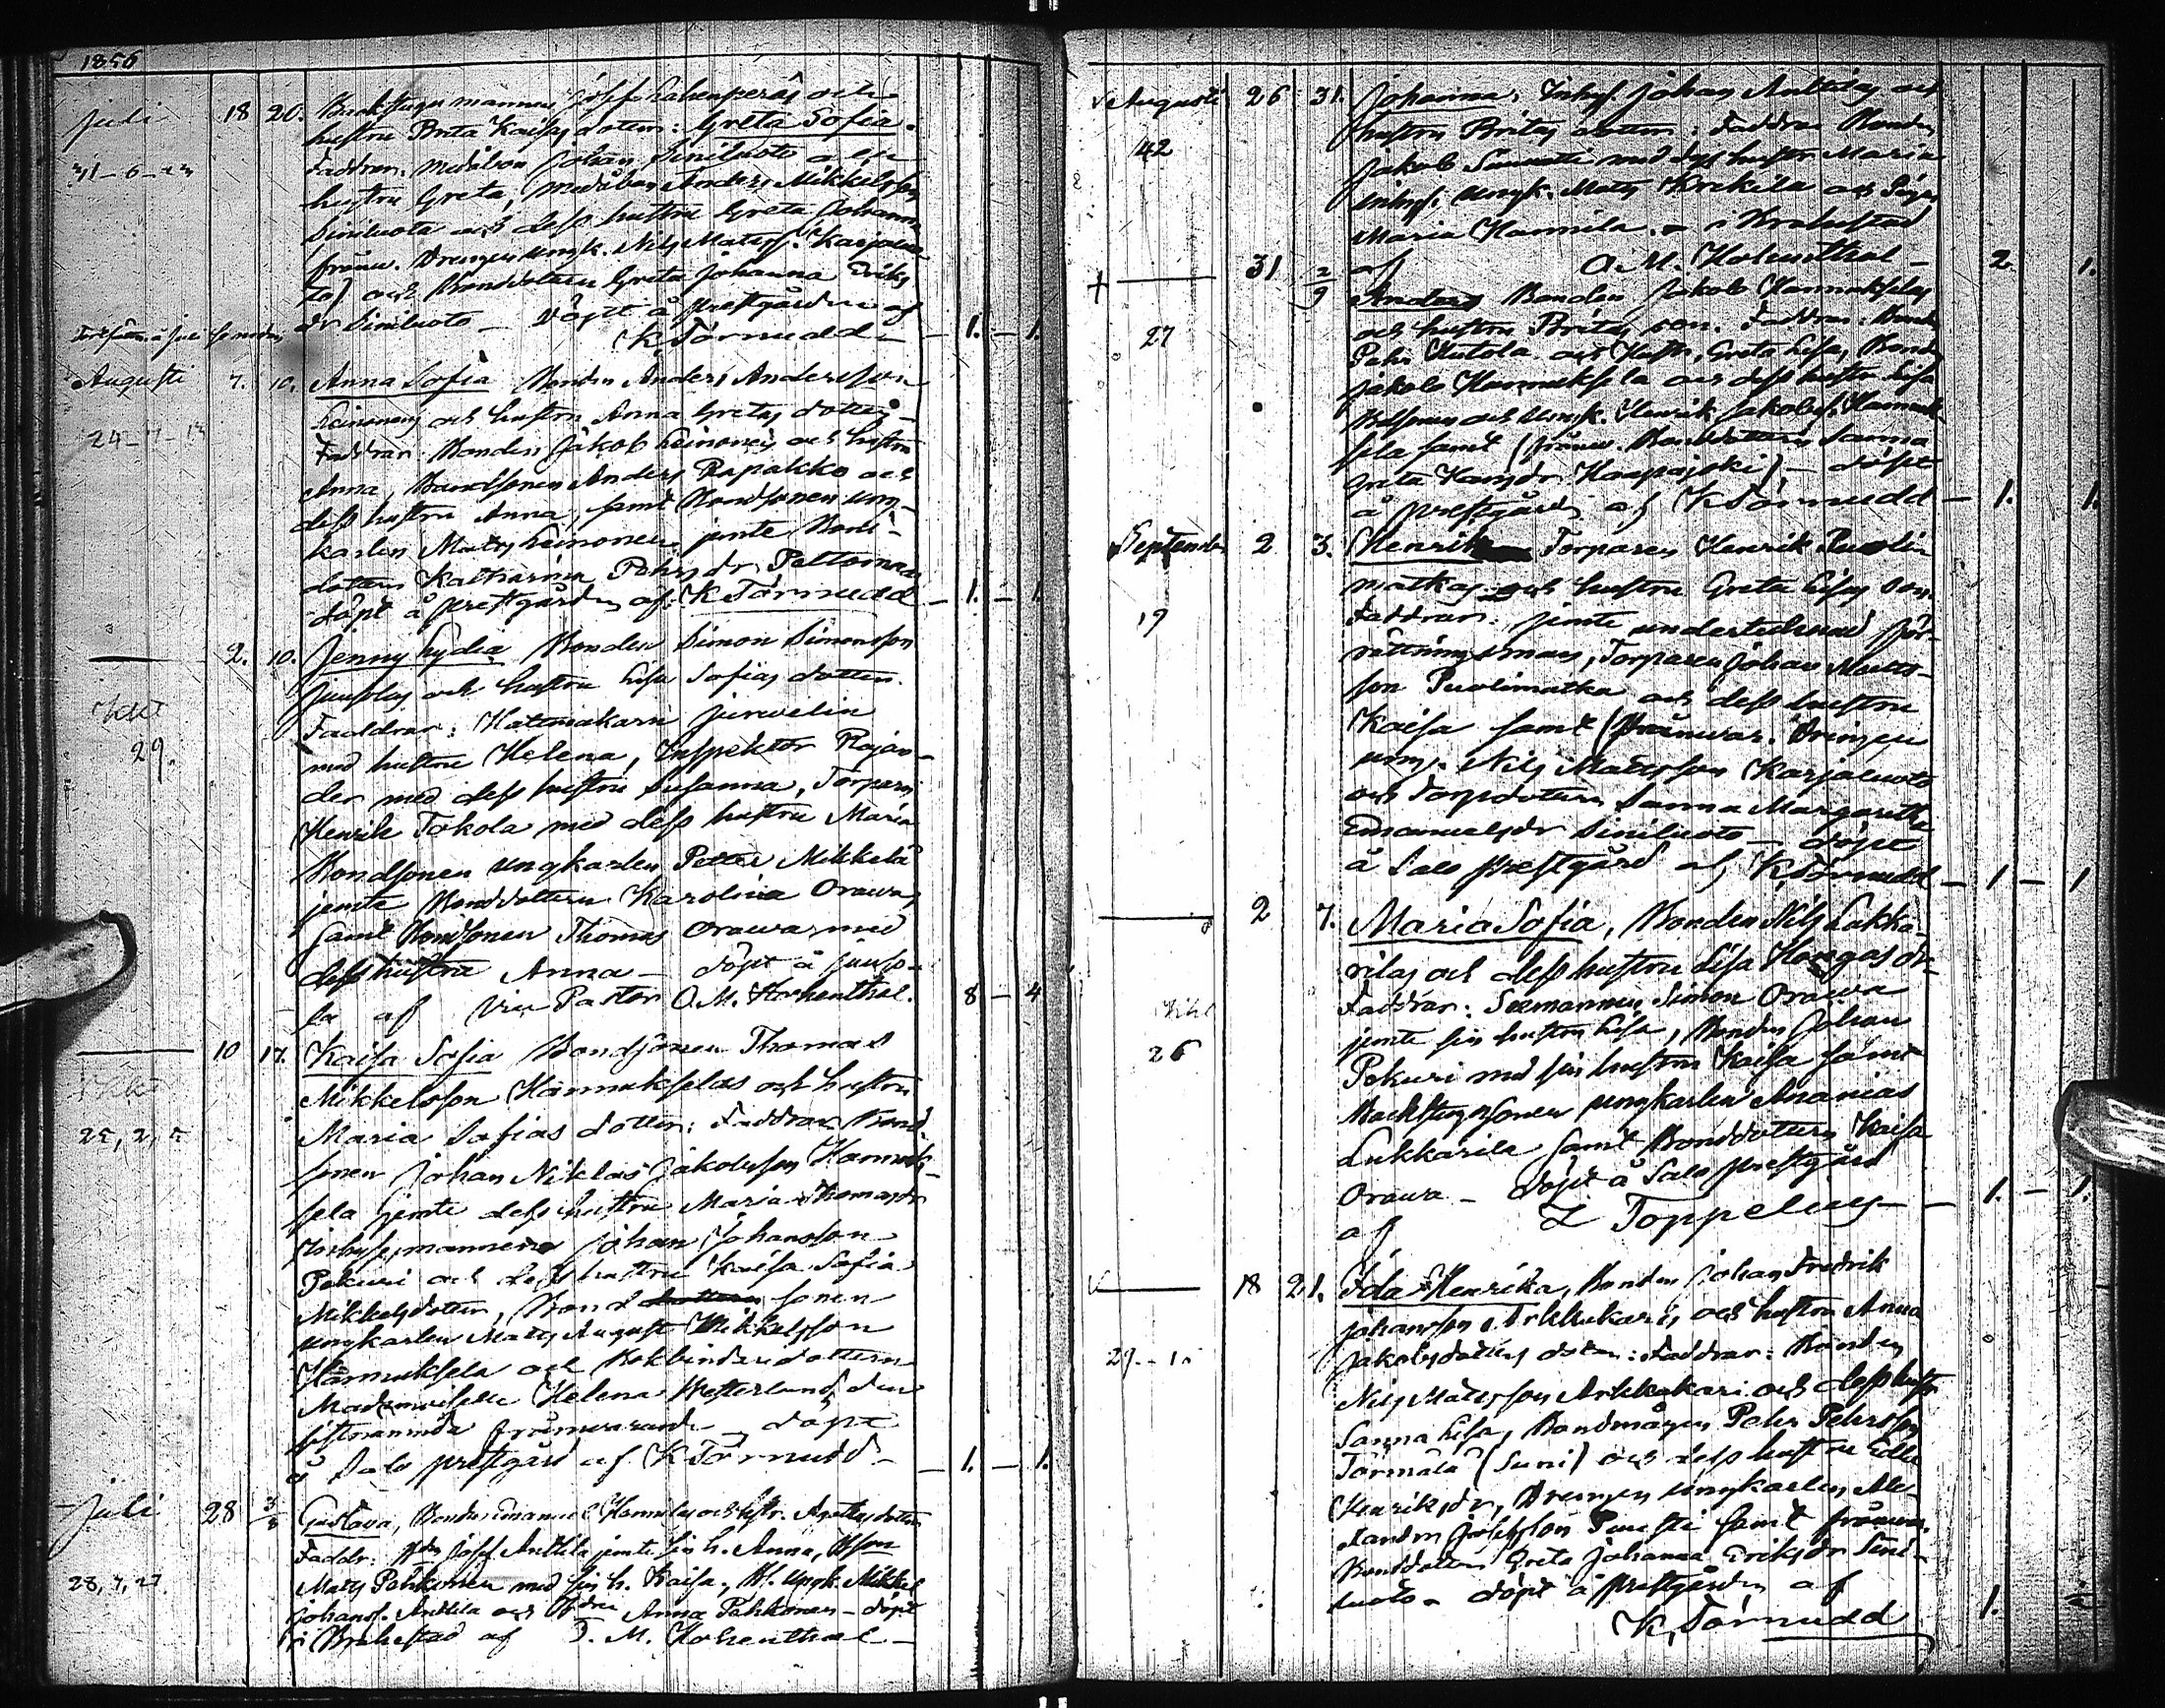 1856
Juli 18 20. Backstugu mannen Josef Lahenperäs och
hustru Brita Kaisas dotter: Greta Sofia.
31-6-23 Faddrar. Medåboen Johan Siniluoto och
hustru Greta, medåboen Anders Mikkelsson
Siniluoto och dess hustru Greta Johanna
frånv. Drengen ungk. Nils Matsf. Karjaluo-
to) och Bonddottren Greta Johanna Eriks
dr Siniluoto – Döpt å prestgården af
K, Törnudd – 1. – 1.
Augusti 7. 10. Anna Sofia Bonden Anders Andersson
Leinonens och hustru Anna Gretas dotter –
24-7-13 Faddrar Bonden Jakob Leinonen och hustru
Anna, Bondsonen Anders Papakko och
dess hustru Anna, samt Bondsonen ung-
karlen Mats Leinonen jemte Bond-
dottren Katharina Pehrs dr Peltomaa
döpt å prestgården af: K Törnudd – 1. – 1.
2. 10. Jenny Lydia Bonden Simon Simonsson
Juusolas och hustru Lisa Sofias dotter.
29. Faddrar: Hattmakaren Jurvelin
med hustru Helena, Inspektor Rajan-
der med dess hustru Susanna, Torparen
Henrik Tokola med dess hustru Maria
Bondsonen ungkarlen Petter Mikkelä
jemte Bonddottren Karolina Orawa,
samt Bondsonen Thomas Orawa med
dess hustru Anna – döpt å Juuso-
la af Vice Pastor O.M. Hohenthal. 8 – 4
10 17. Kaisa Sofia Bondsonen Thomas
Mikkelsson Hannukselas och hustru
25, 2, Maria Sofias dotter: Faddrar Bond-
sonen Johan Niklas Jakobsson Hannuk-
sela jemte dess hustru Maria Thomasdr
Inhysesmannen Johan Johansson
Pekuri och dess hustru Kaisa Sofia
Mikkelsdotter, Bond dottren sonen
ungkarlen Mats August Mikkelsson
Hannuksela och Bokbindaredottren
Mademoiselle Helena Westerlund, den
sistnämnda frånvarande – döpt
å Salo prestgård af K Törnudd – 1. – 1.
Juli 28 3/8 Gustava, Bonden Emanuel Hannilas och hstr. Agathas dotter
Faddr: Josef Anttila jemte sin h. Anna,
28, 7, 27. Mats Pehkonen med sin h. Kaisa, ungk. Mikkel
Johansf. Anttila och Anna Pehkonen – döpt
i Brahestad af O. M. Hohenthal –
Augusti 26 31. Johanna, Inhys. Johan Anttilas och
42 hustru Britas dotter: Faddrar Bonden
Jakob med dess hustr Maria
inhys. ungk. Mats Krekilä och Pigan
Maria Hannila. – i Brahestad
af O. M. Hohenthal – 2 1.
31 2/9 Anders Bonden Jakob Hannukselas
27 och hustru Britas son. Faddrar: Bonden
Pehr Hutola och Hustr. Greta Lisa, Bonden
Jakob Hannuksela och dess hustru Lisa
och ungk. Henrik Jakobs. Hannuk-
sela samt (frånv. Bonddottren Sanna
Greta Hansdr Haapajoki) – döpt
å prestgården af K Törnudd – 1. 1.
September 2 3. Henrik Torparen Henrik Puolin
matkas och hustru Greta Lisas son.
19 Faddrar: jemte undertecknad för-
rättningsman, Torparen Johan Matts-
son Puolimatka och dess hustru
Kaisa samt (frånvar. Drengen
ung. Nils Matsson Karjaluoto
och Torpdottren Sanna Margaretha
Emanuelsdr Siniluoto – döpt
å Salo prestgård af K, Törnudd – 1 – 1
2 7. Maria Sofia, Bonden Nils Lukka-
rilas och dess hustru Lisa Hangas dr
Faddrar: Sexmannen Simon Orawa
26 jemte sin hustru Lisa, Bonden Johan
Pekuri med sin hustru Kaisa samt
Backstugusonen ungkarlen Ananias
Lukkarila samt Bonddottren Kaisa
Orawa – döpt å Salo prestgård
af Z Toppelius – 1. – 1.
18 21. Ida Henrika, Bonden Johan Fredrik
Johansson Arkkukaris och hustru Anna
29. - 15 Jakobsdotters dotter: Faddrar: Bonden
Nils Matsson Arkkukari och dess hustr
Sanna Lisa, Bondmågen Pehr Pehrsson
Törmälä (Suni) och dess hustru
Henriksdr, Drengen ungkarlen Ale-
xander Josefsson samt frånvar.
Bonddottren Greta Johanna Eriksdr Sini-
luoto – döpt å prestgården af
K, Törnudd 1.